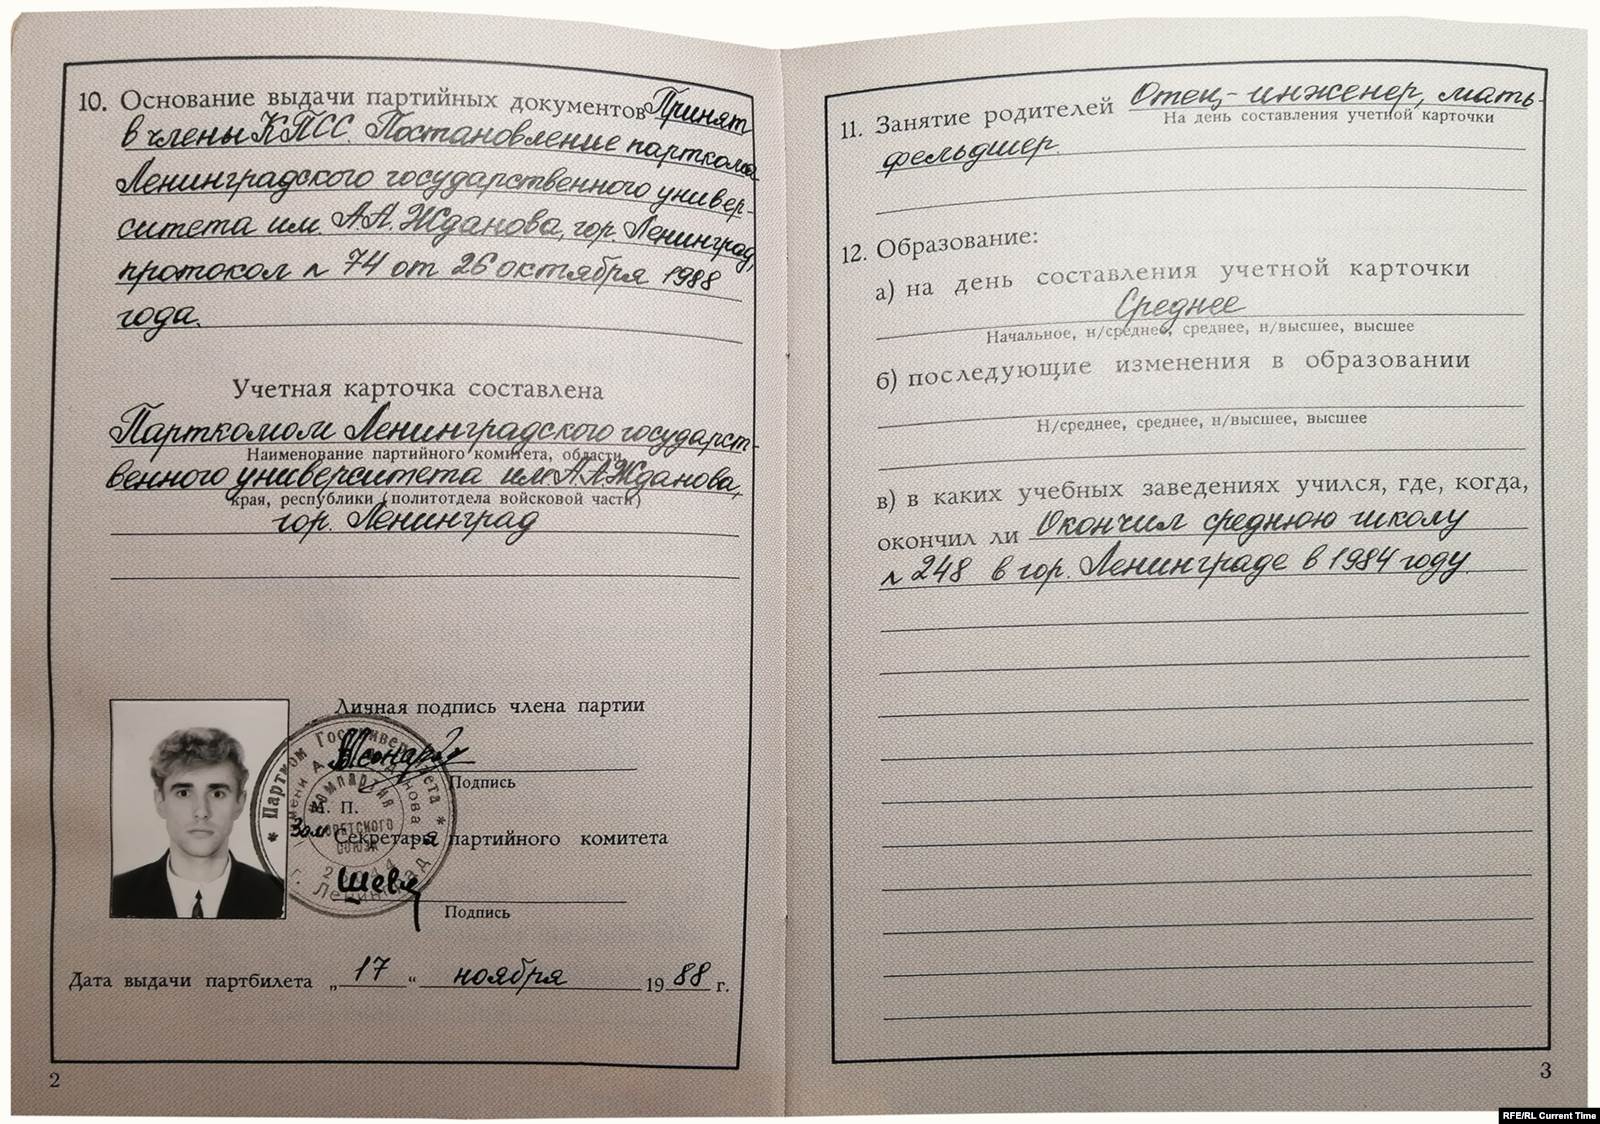 10. Основание выдачи партийных документов Принят
в члены КПСС. Постановление парткома
Ленинградского государственного универ-
ситета им. А.А. Жданова, гор. Ленинград,
протокол № 74 от 26 октября 1988
года.
Учетная карточка составлена
Парткомом Ленинградского государст-
Наименование партийного комитета, области,
венного университета им. А.А. Жданова,
края, республики (политотдела войсковой части)
гор. Ленинград
Личная подпись члена партии
Подпись
М. П.
Зам. Секретаря партийного комитета
Подпись
* Партком Госуниверситета *
имени А. А. Жданова
Компартия
Советского
Союза
г. Ленинград
Дата выдачи партбилета „17“ ноября 1988 г.
2
11. Занятие родителей Отец - инженер, мать-
На день составления учетной карточки
фельдшер.
12. Образование:
а) на день составления учетной карточки
Среднее
Начальное, н/среднее, среднее, н/высшее, высшее
б) последующие изменения в образовании
Н/среднее, среднее, н/высшее, высшее
в) в каких учебных заведениях учился, где, когда,
окончил ли Окончил среднюю школу
№ 248 в гор. Ленинграде в 1984 году.
3
RFE/RL Current Time